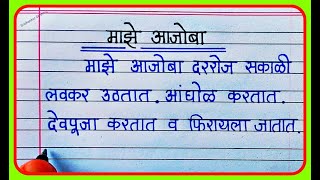 माझे आजोबा
माझे आजोबा दररोज सकाळी
लवकर उठतात. आंघोळ करतात.
देवपूजा करतात व फिरायला जातात.